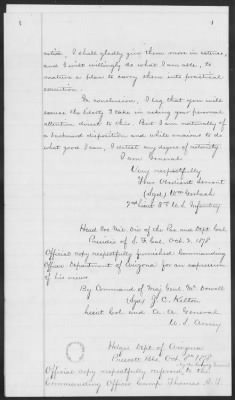 notice. I shall gladly give them more in extenso,
and I will willingly do what I am able, to
mature a plan to carry them into practical
execution.
In conclusion, I beg that you will
excuse the liberty I take in asking your personal
attention direct to this. But I am naturally of
a backward disposition and while anxious to do
what good I can, I detest any degree of notoriety
I am General
Very respectfully
Your Obedient Servant
(Sgd) Wm
2nd Lieut 8th U.S. Infantry
Head Qrs Mil. Div of the Pac and Dept Cal
Presidio of S. F. Cal. Oct. 2, 1878
Official copy respectfully furnished Commanding
Officer Department of Arizona for an expression
of his views
By Command of Maj Genl. McDowell
(Sgd) J. C. Kelton
Lieut Col and A. A. General
U. S. Army
Hdqrs Dept of Arizona
Prescott Oct. 8th 1878
Official copy respectfully referred to the
Commanding Officer Camp Thomas A. T.